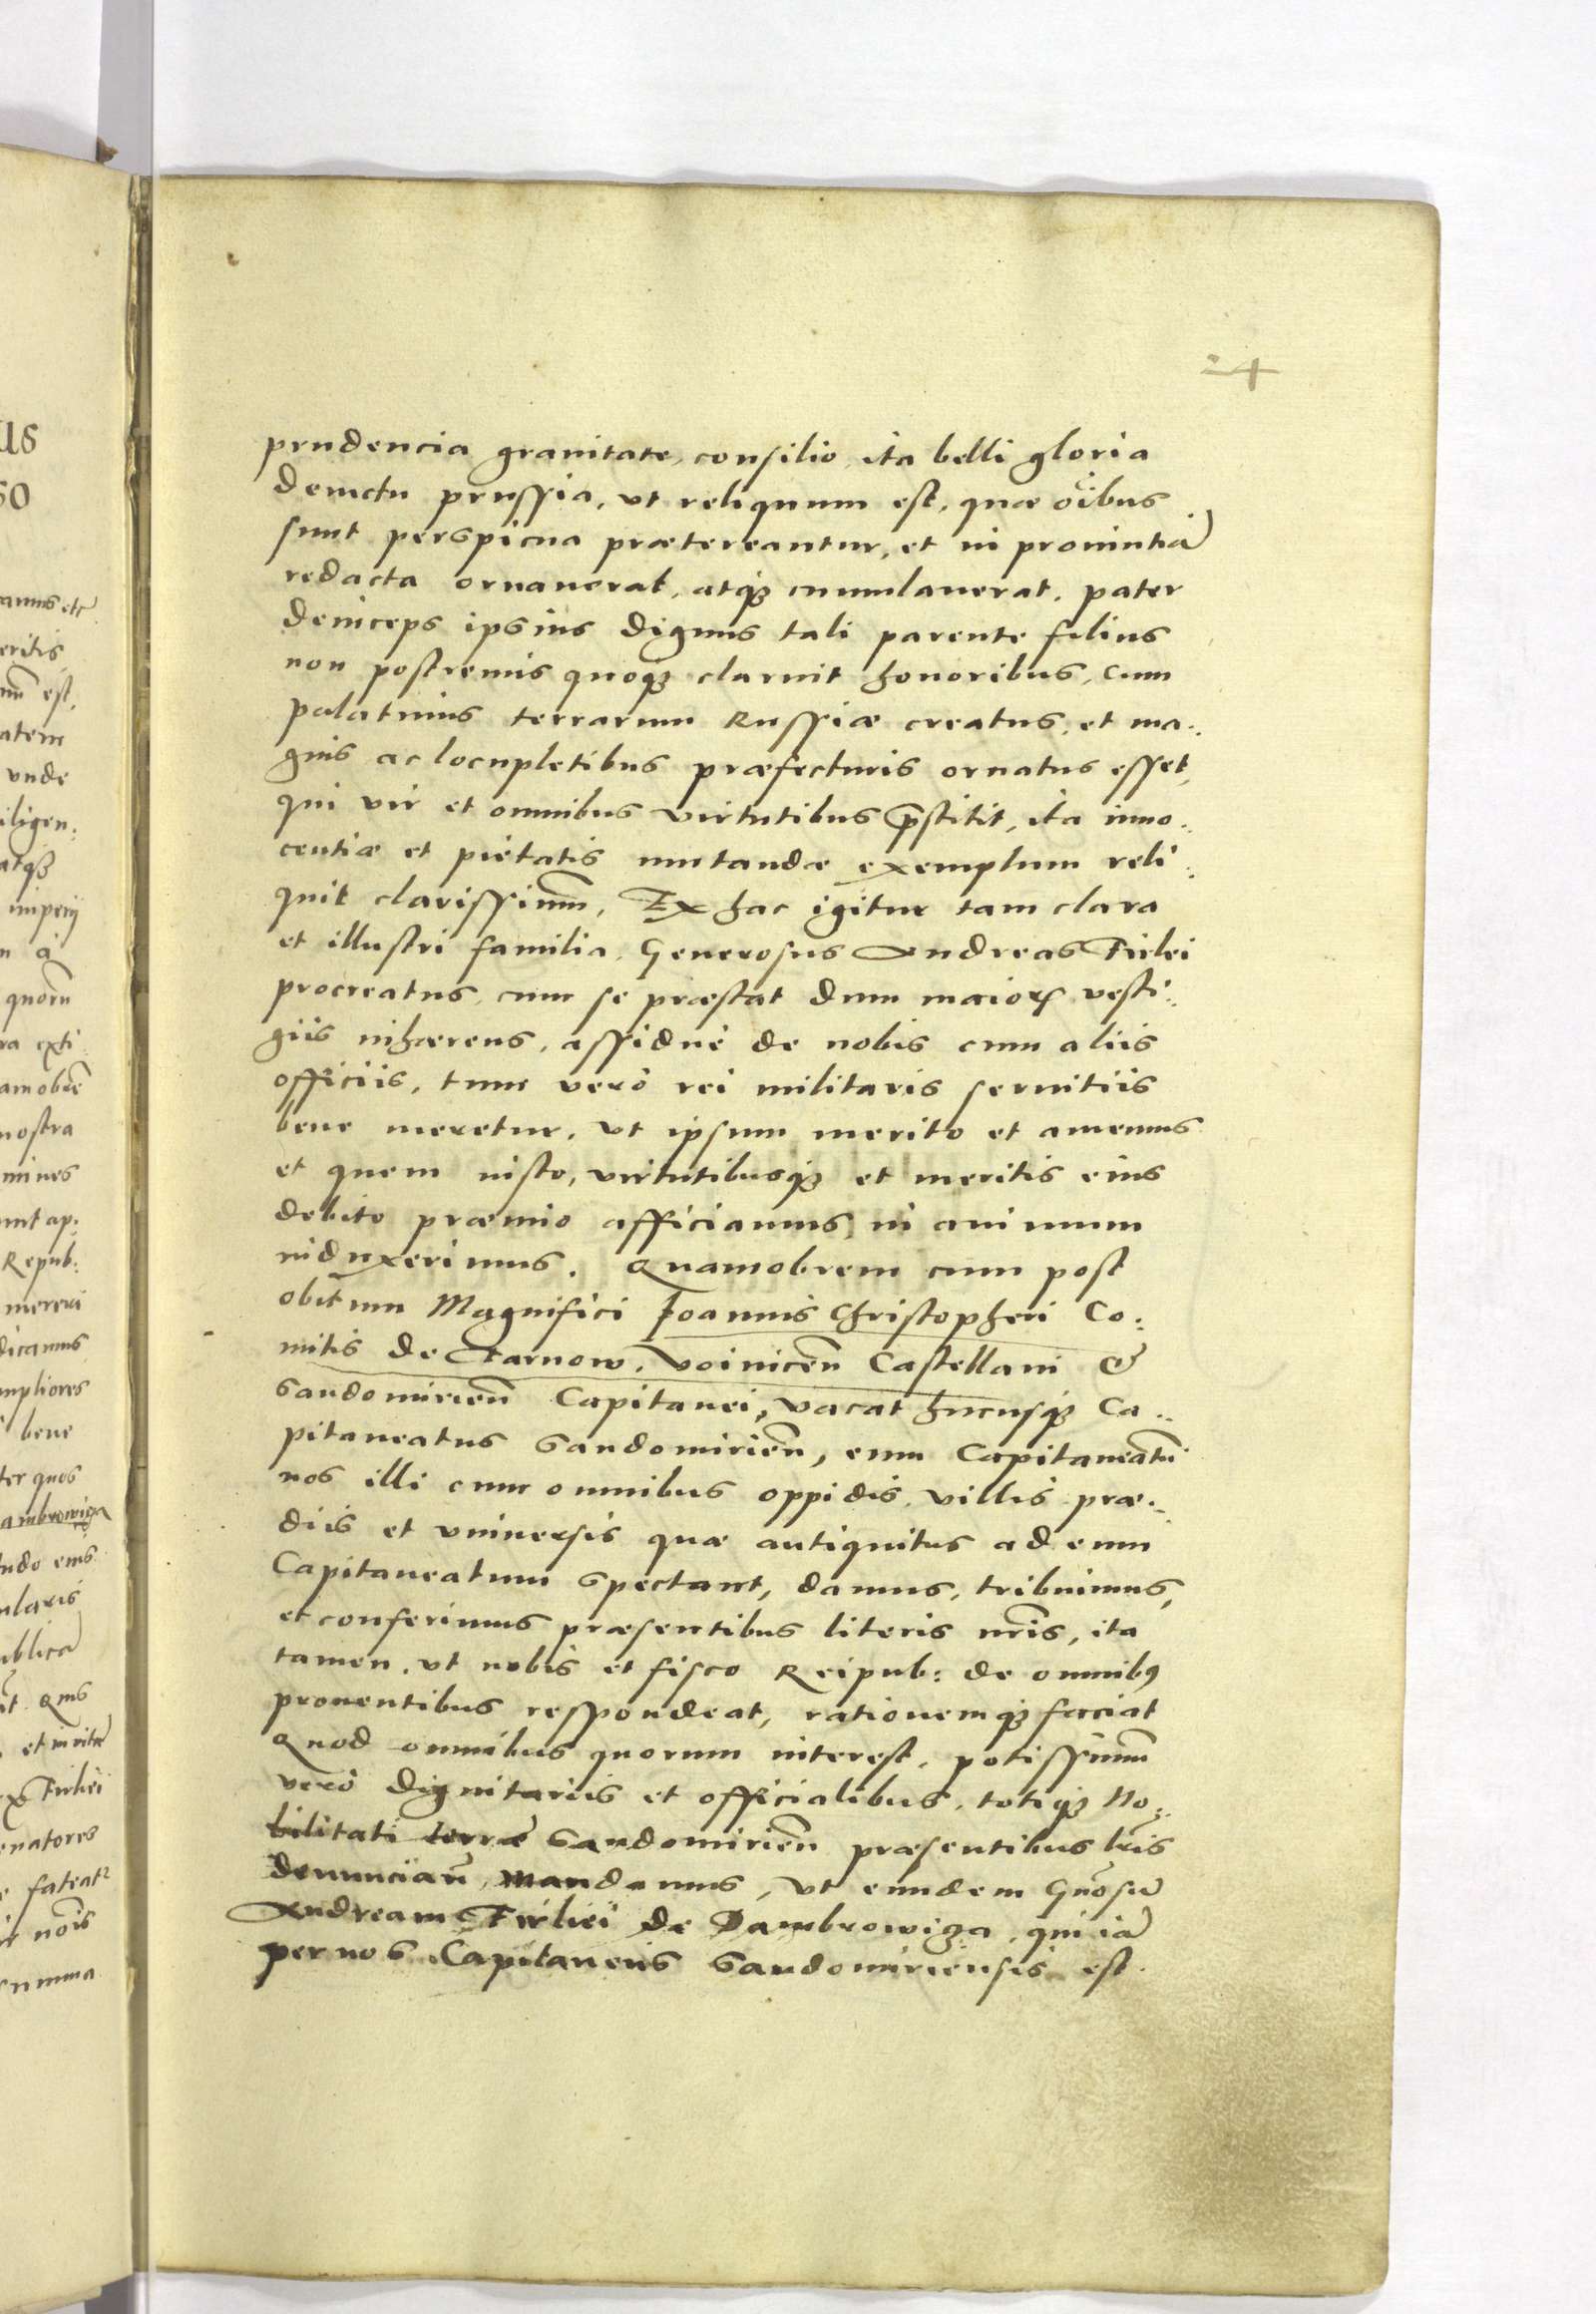 24
prudencia gravitate, consilio, ita belli gloria
devicta prussia, ut reliquum est, quæ oĩbus
sunt perspicua prætereantur, et in provintiã
redacta ornauerat, atqȝ cumulauerat. pater
deinceps ipsius dignus tali parente filius
non postremis quoqȝ claruit honoribus, cum
palatinus terrarum Russiæ creatus, et ma:
gnis ac locupletibus præfecturis ornatus esset,
qui vir et omnibus virtutibus p̃stitit, ita inno:
centiæ et pietatis imitandæ exemplum reli:
quit clarissimũ, Ex hac igitur tam clara
et illustri familia, Generosus Andreas Firlei
procreatus, cum se præstat dum maiorꝝ vesti:
giis inhærens, assiduè de nobis cum aliis
officiis, tum verò rei militaris seruitiis
bene meretur, ut ipsum merito et amemus
et quem iusto, virtutibusqȝ et meritis eius
debito præmio afficiamus, in animum
induxerimus. Quamobrem cum post
obitum Magnifici Joannis Christopheri Co:
mitis de Tarnow, Voinicen̄ Castellani &
Sandomirien̄ Capitanei, vacat hucusqȝ Ca:
pitaneatus Sandomirien̄, eum Capitaneatũ
nos illi cum omnibus oppidis, villis, præ:
diis et vniuersis quæ antiquitus ad eum
Capitaneatum spectant, damus, tribuimus,
et conferimus præsentibus literis nr̃is, ita
tamen, ut nobis et fisco Reipub: de omnibꝰ
prouentibus respondeat, rationemqȝ faciat
Quod omnibus quorum interest, potissimũ
verò dignitariis et officialibus, totiqȝ No:
bilitati terræ Sandomirien̄ præsentibus lr̃is
denuncian̄, mandamus, ut eundem Gñosũ
Andream Firlei de Dambrowiza, qui iã
per nos Capitaneus Sandomiriensis est